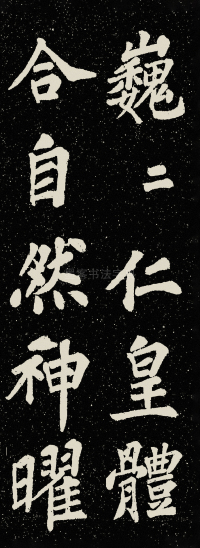 巍二仁皇體
合自然神曜